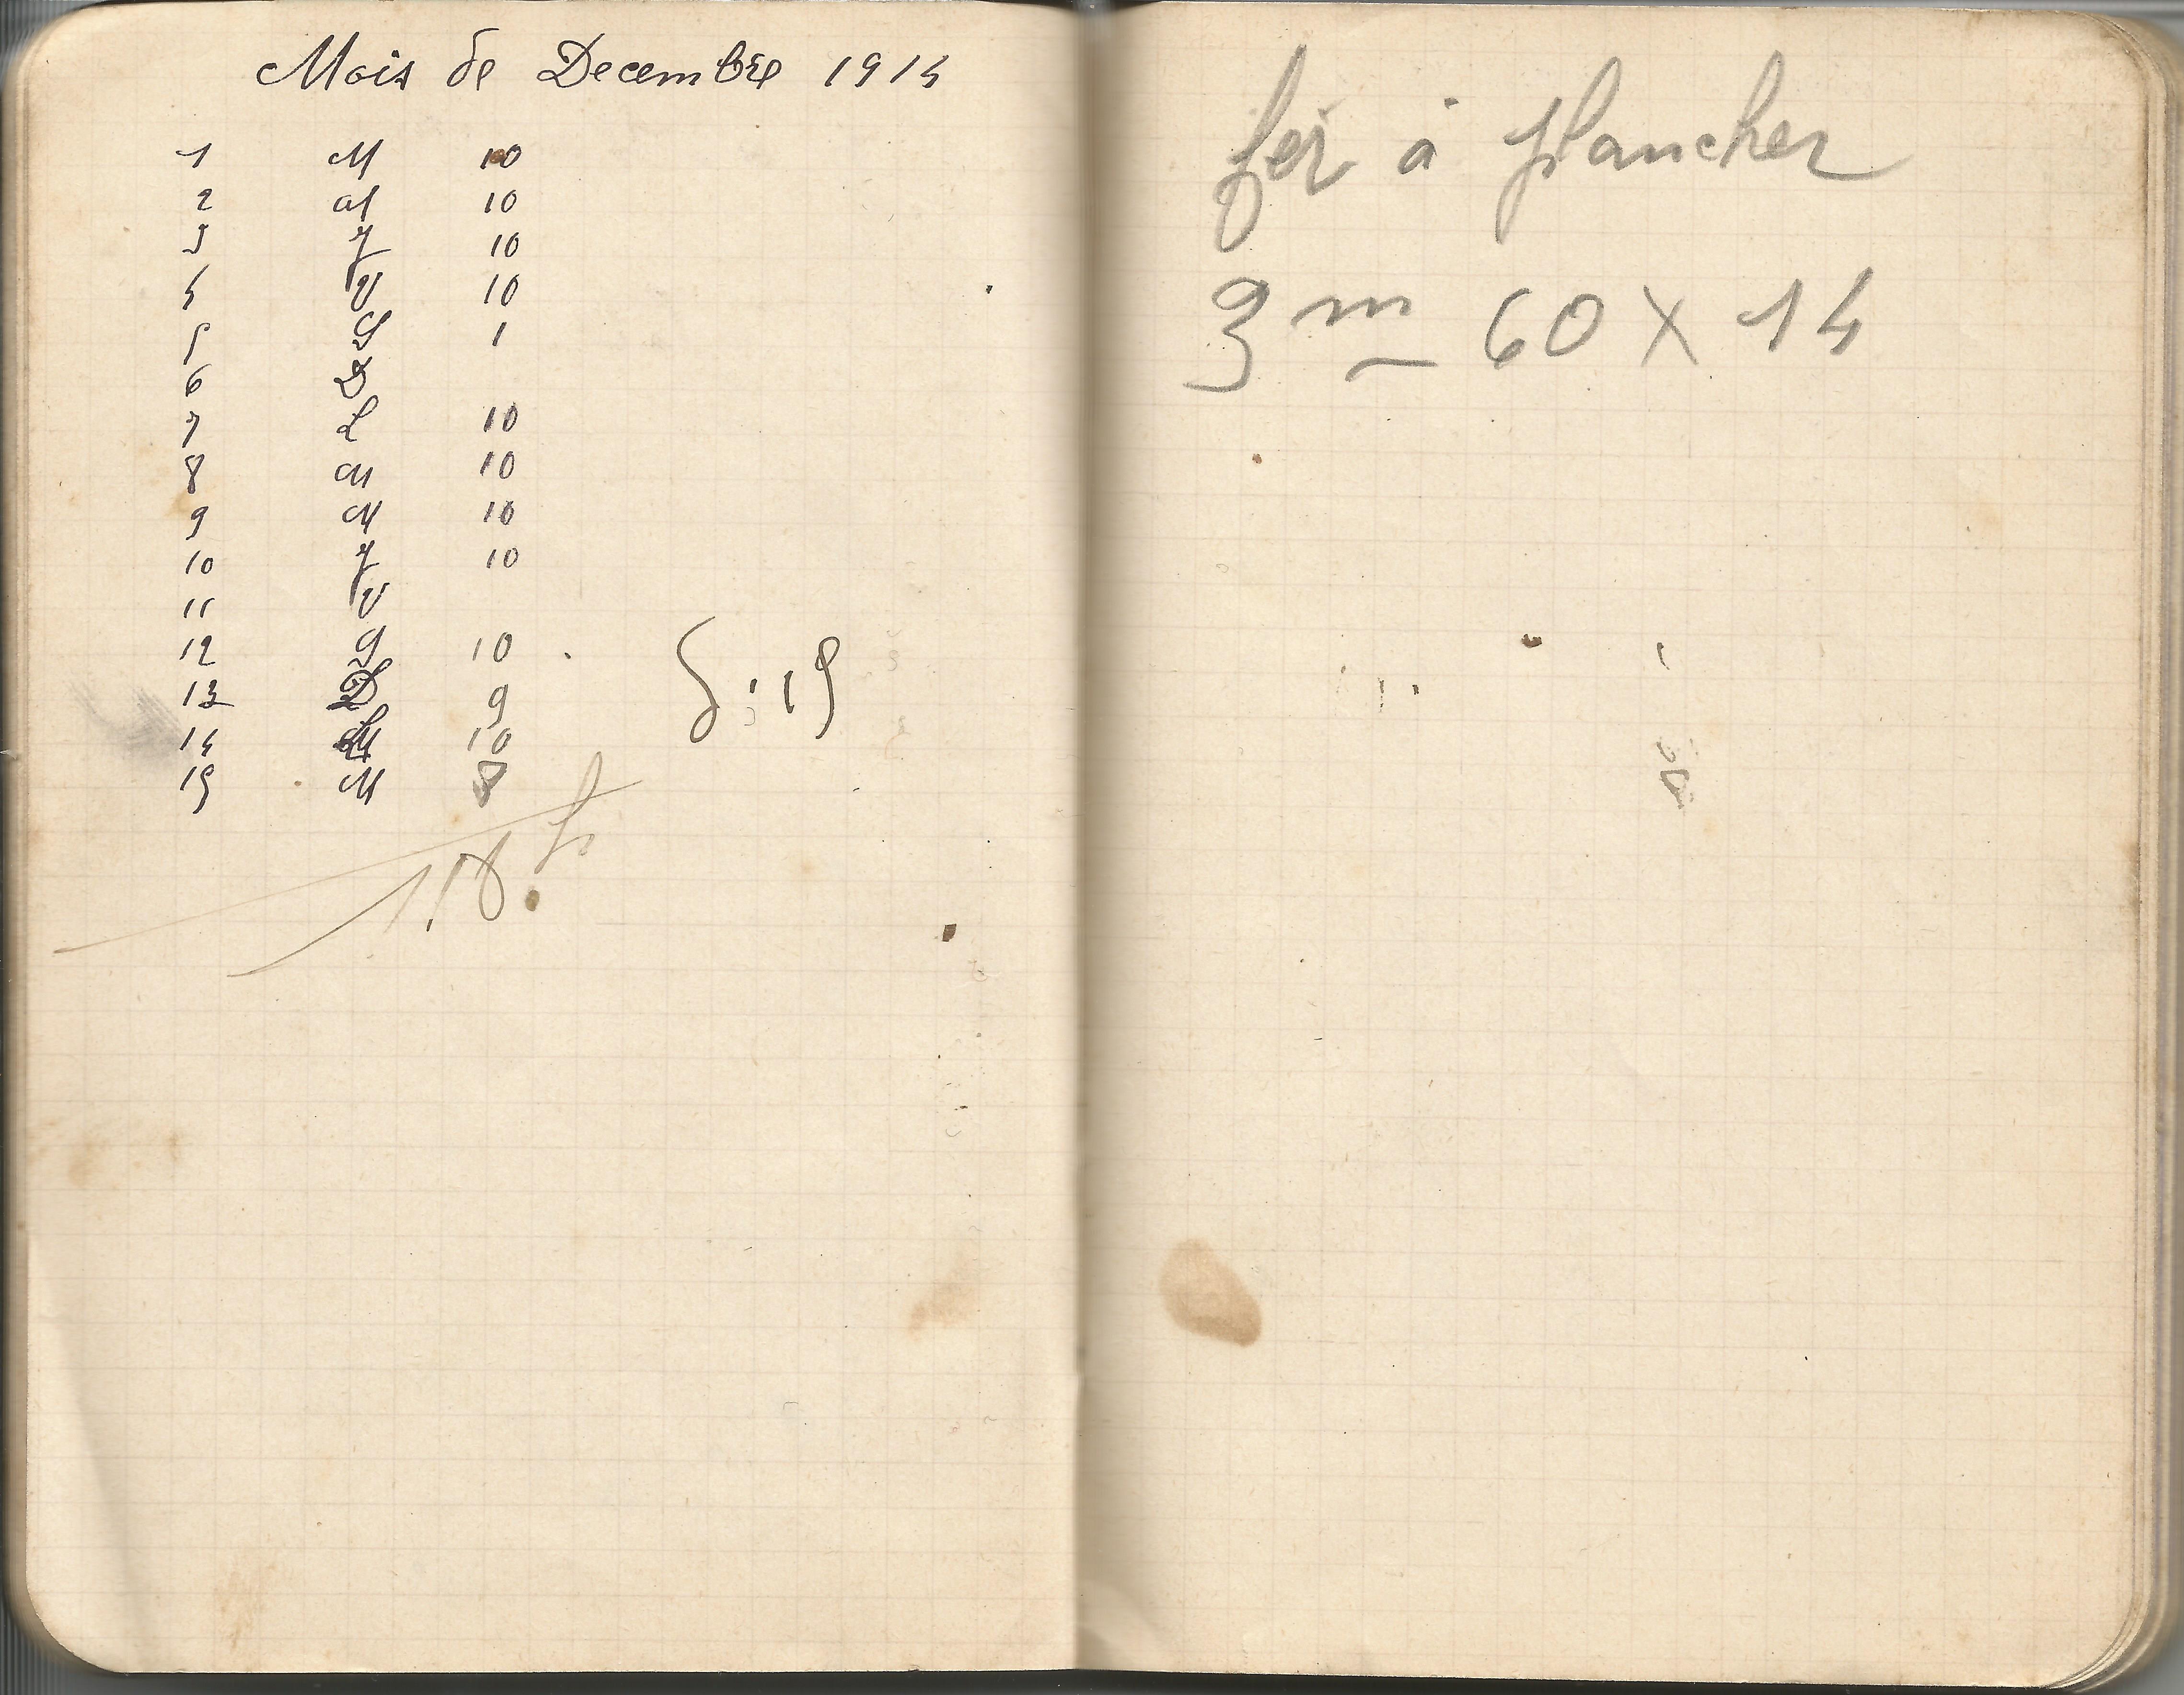 Mois de Decembre 1914
1 M 10
2 M 10
3 J 10
4 V 10
5 S 1
6 D
7 L 10
8 M 10
9 M 10
10 J 10
11 V
12 S 10
13 D 9
14 L 10
15 M 8
118. h
fer à plancher
3 m 60 X 14